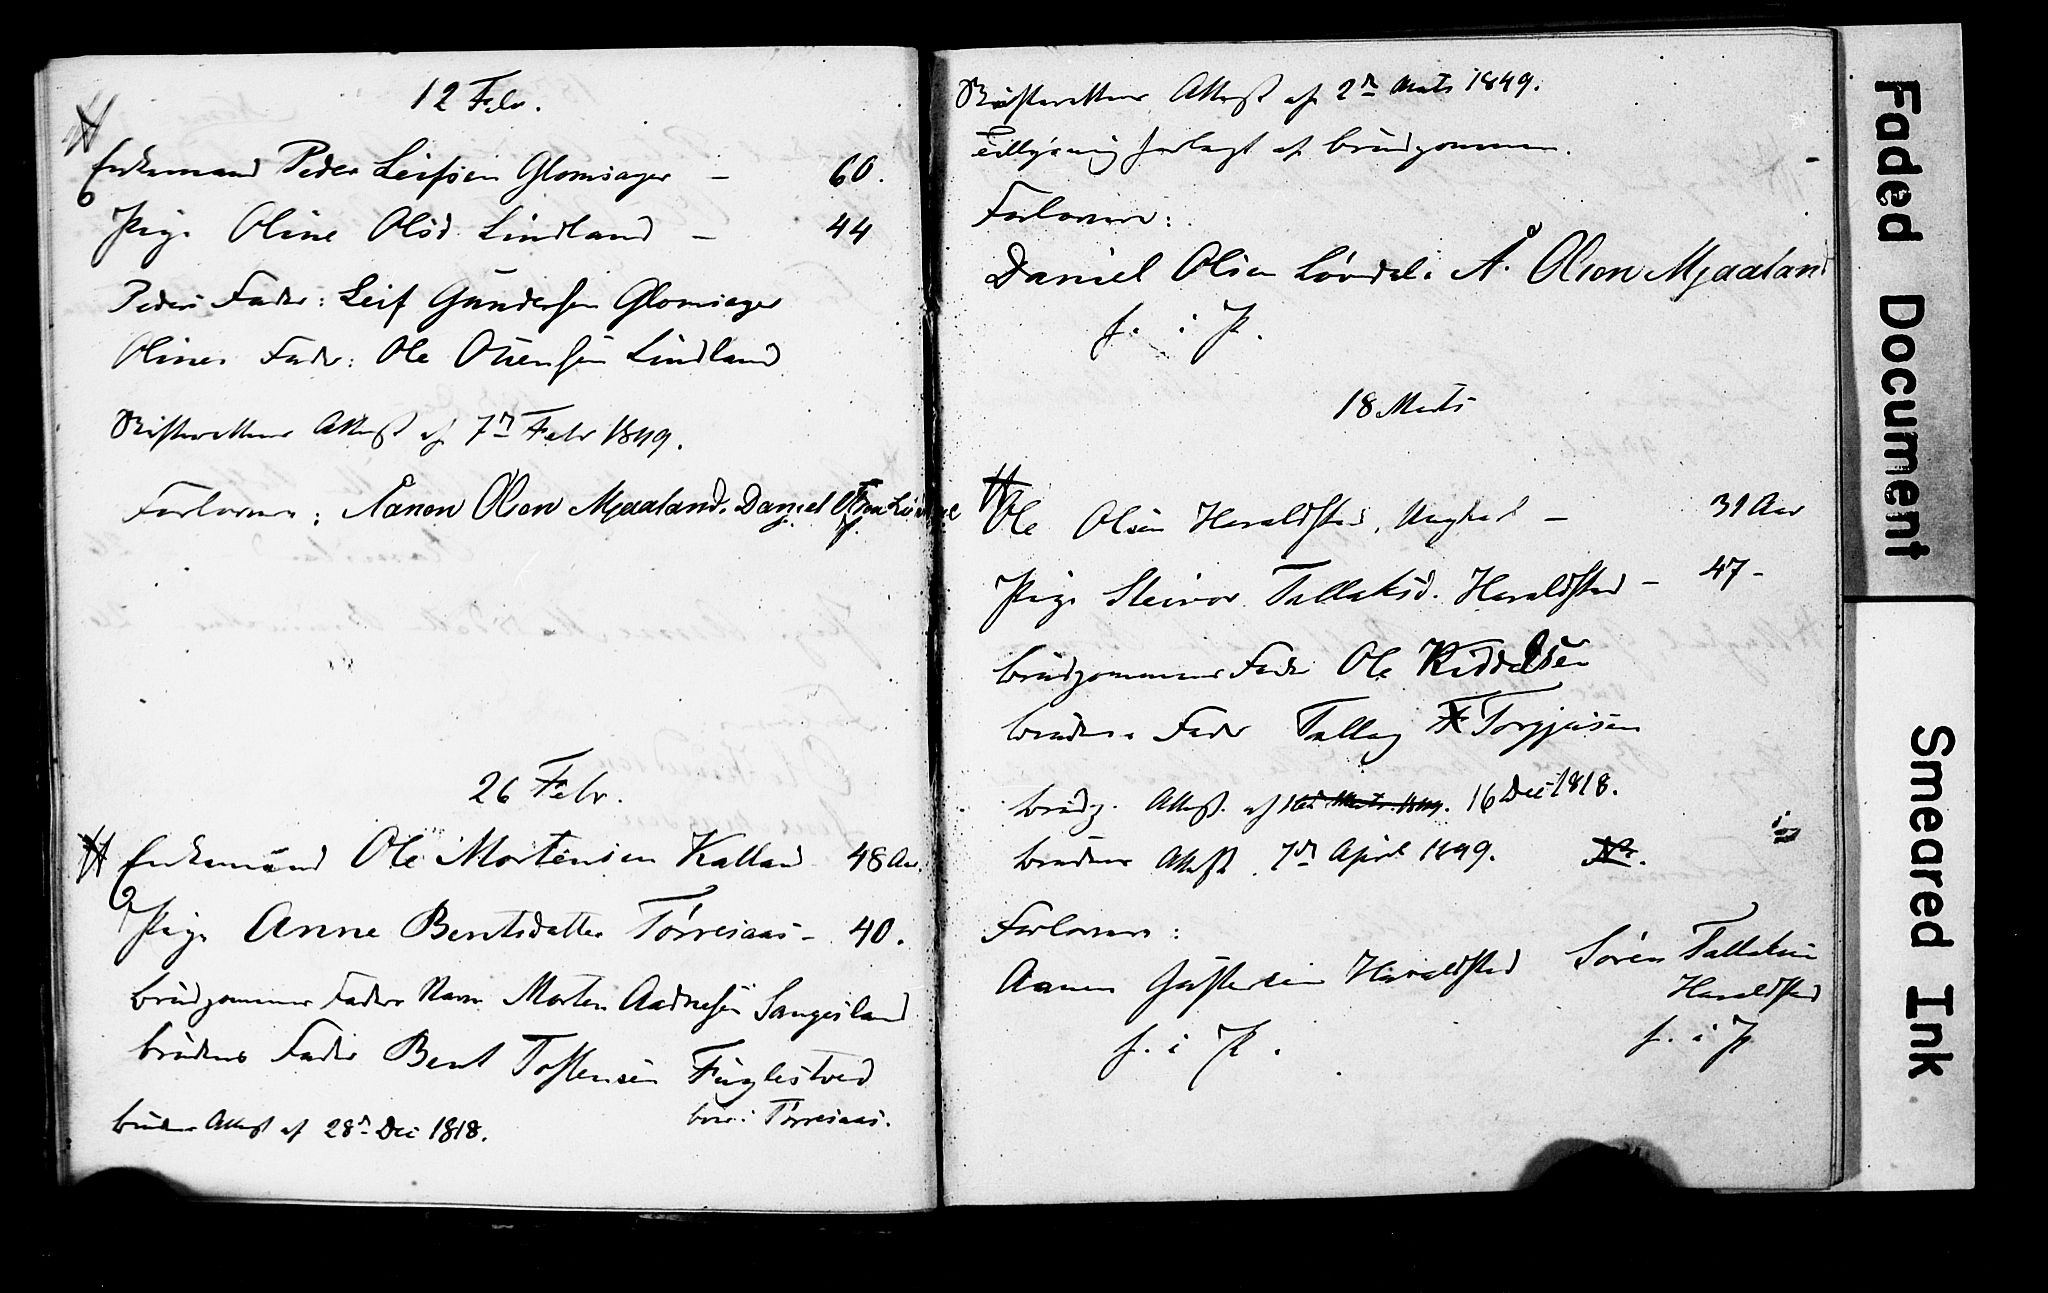 12 Febr.
Enkemand Peder Leifsen Glomsager – 60.
Pige Oline Olsd. Lindland – 44
Peders Fader: Leif Gundersen Glomsager
Olines Fader: Ole Osuensen Lindland
Skifterettens Attest af 7de Febr 1849.
Forlovere: Aanon Olson Mjaaland. Daniel Olsen
26 Febr.
Enkemand Ole Mortensen Kalland 48 Aar.
Pige Anne Bentsdatter Tørresaas – 40.
brudgommens Faders Navn Morten Aadnesen Sangesland
brudens Fader Bent Tostensen Fuglestved
boer i Tørresaas.
brudens Attest af 28de Dec 1818.
Skifterettens Attest af 2den Marts 1849.
forlagt af brudgommen.
Forlovere:
Daniel Olsen Løvdal. A. Olson Mjaaland
f. i P.
18 Marts
Ole Olsen Haraldstad, Ungkarl – 31 Aar
Pige Steinor Tallaksd. Haraldstad – 47 –
brudgommens Fader Ole Kiddelsen
brudens Fader Tallag Torgjusen
brudg. Attest. af 16 Dec 1818.
brudens Attest 7de April 1849.
Forlovere:
Aanen Gustavsen Haraldstad Søren Tallaksen
Haraldstad
f. i P. f. i P
Faded Document
Smeared Ink